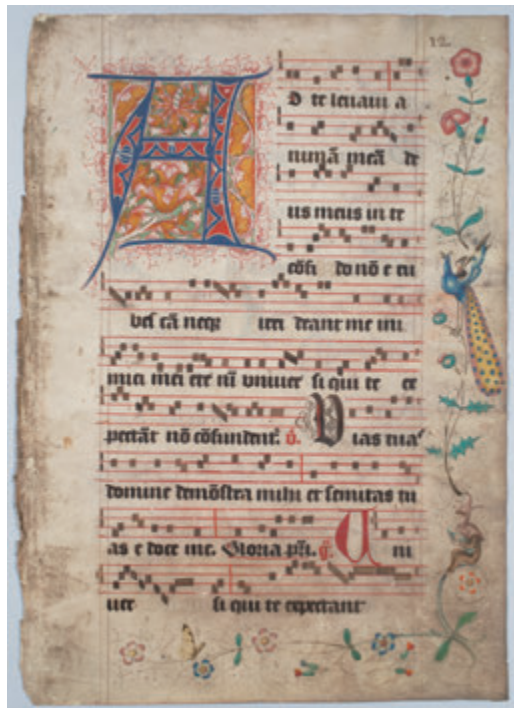 12.
A D te levavi a
nimā meā de
us meus in te
cōfi do nō e ru
bes cā neqʒ irri deant me ini
mici mei etc nī vniuer si qui te ex
pectāt nō cōfundent̄. v̄. Vias tuas
domine demōstra mihi et semitas tu
as e doce me. Gloria pr̄i. p̄. Uni
uer si qui te expectant